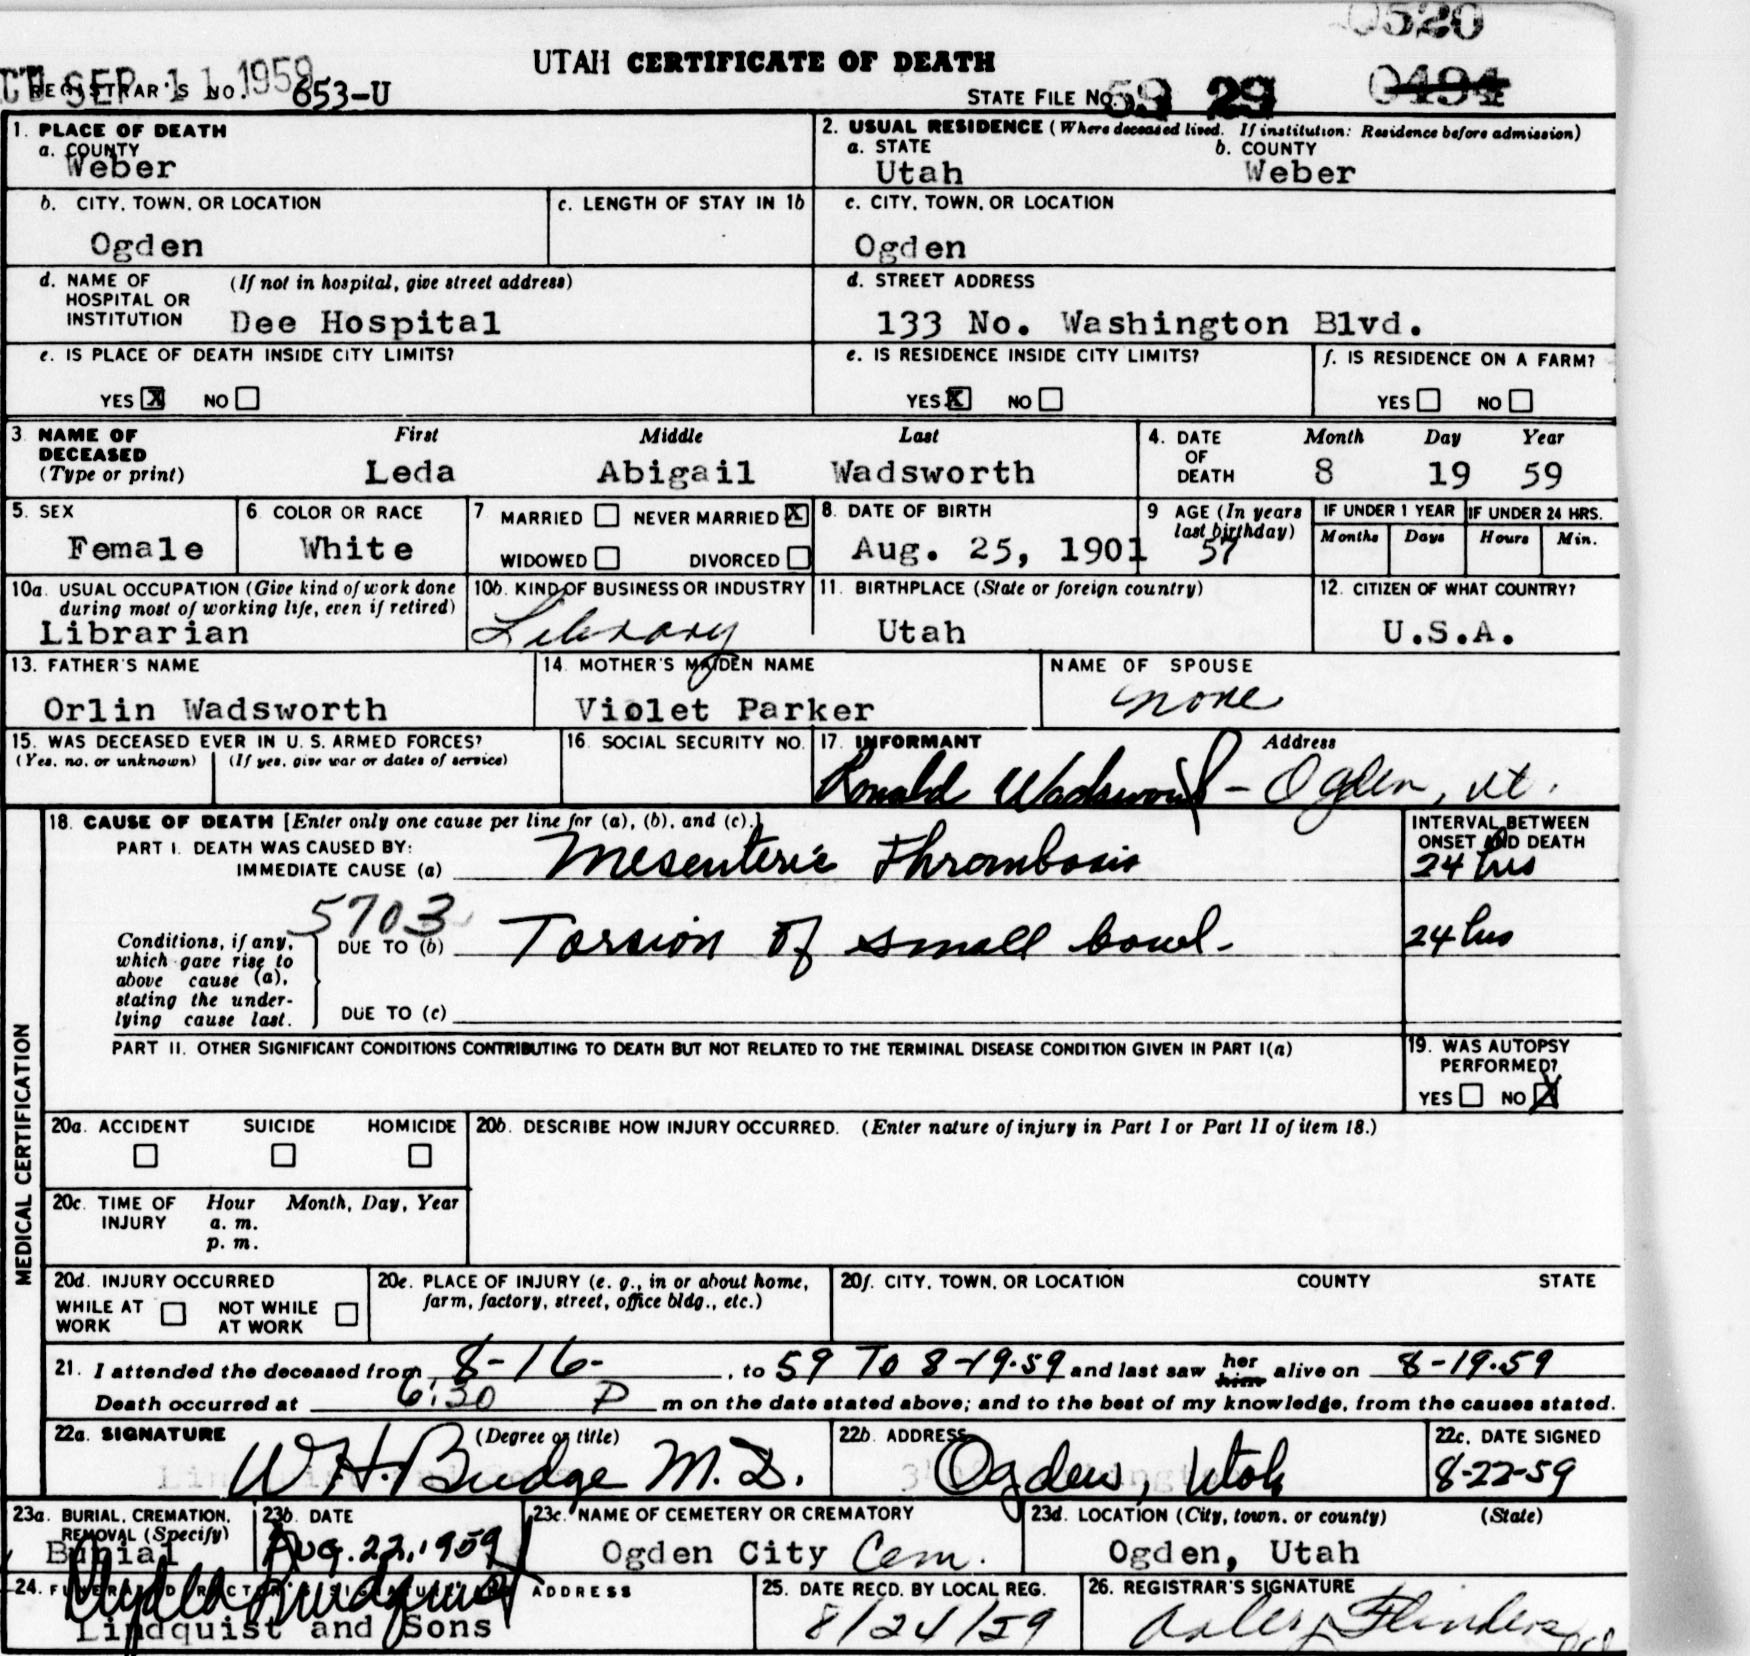 0520
UTAH CERTIFICATE OF DEATH
SEP 11 1959
REGISTRAR'S NO. 653-U
STATE FILE NO. 59 29 0494
1. PLACE OF DEATH
a. COUNTY
Weber
2. USUAL RESIDENCE (Where deceased lived. If institution: Residence before admission)
a. STATE b. COUNTY
Utah Weber
b. CITY, TOWN, OR LOCATION
Ogden
c. LENGTH OF STAY IN 1b
c. CITY, TOWN, OR LOCATION
Ogden
d. NAME OF HOSPITAL OR INSTITUTION (If not in hospital, give street address)
Dee Hospital
d. STREET ADDRESS
133 No. Washington Blvd.
e. IS PLACE OF DEATH INSIDE CITY LIMITS?
YES X NO
e. IS RESIDENCE INSIDE CITY LIMITS?
YES X NO
f. IS RESIDENCE ON A FARM?
YES NO
3. NAME OF DECEASED (Type or print)
First Middle Last
Leda Abigail Wadsworth
4. DATE OF DEATH
Month Day Year
8 19 59
5. SEX
Female
6. COLOR OR RACE
White
7. MARRIED NEVER MARRIED X
WIDOWED DIVORCED
8. DATE OF BIRTH
Aug. 25, 1901
9. AGE (In years last birthday)
57
IF UNDER 1 YEAR
Months Days
IF UNDER 24 HRS.
Hours Min.
10a. USUAL OCCUPATION (Give kind of work done during most of working life, even if retired)
Librarian
10b. KIND OF BUSINESS OR INDUSTRY
Library
11. BIRTHPLACE (State or foreign country)
Utah
12. CITIZEN OF WHAT COUNTRY?
U.S.A.
13. FATHER'S NAME
Orlin Wadsworth
14. MOTHER'S MAIDEN NAME
Violet Parker
NAME OF SPOUSE
none
15. WAS DECEASED EVER IN U.S. ARMED FORCES?
(Yes, no, or unknown) (If yes, give war or dates of service)
16. SOCIAL SECURITY NO.
17. INFORMANT Address
Ronald Wadsworth - Ogden, Ut.
MEDICAL CERTIFICATION
18. CAUSE OF DEATH [Enter only one cause per line for (a), (b), and (c).]
INTERVAL BETWEEN ONSET AND DEATH
PART I. DEATH WAS CAUSED BY:
IMMEDIATE CAUSE (a) Mesenteric Thrombosis 24 hrs
5703
Conditions, if any, which gave rise to above cause (a), stating the underlying cause last.
DUE TO (b) Torsion of small bowel - 24 hrs
DUE TO (c)
PART II. OTHER SIGNIFICANT CONDITIONS CONTRIBUTING TO DEATH BUT NOT RELATED TO THE TERMINAL DISEASE CONDITION GIVEN IN PART I(a)
19. WAS AUTOPSY PERFORMED?
YES NO X
20a. ACCIDENT SUICIDE HOMICIDE
20b. DESCRIBE HOW INJURY OCCURRED. (Enter nature of injury in Part I or Part II of item 18.)
20c. TIME OF INJURY Hour Month, Day, Year
a. m.
p. m.
20d. INJURY OCCURRED
WHILE AT WORK NOT WHILE AT WORK
20e. PLACE OF INJURY (e. g., in or about home, farm, factory, street, office bldg., etc.)
20f. CITY, TOWN, OR LOCATION COUNTY STATE
21. I attended the deceased from 8-16-, to 59 To 8-19-59 and last saw her him alive on 8-19-59
Death occurred at 6:30 P m on the date stated above; and to the best of my knowledge, from the causes stated.
22a. SIGNATURE (Degree or title)
W. H. Budge M.D.
22b. ADDRESS
Ogden, Utah
22c. DATE SIGNED
8-22-59
23a. BURIAL, CREMATION, REMOVAL (Specify)
Burial
23b. DATE
Aug. 22, 1959
23c. NAME OF CEMETERY OR CREMATORY
Ogden City Cem.
23d. LOCATION (City, town, or county) (State)
Ogden, Utah
24. FUNERAL DIRECTOR'S SIGNATURE ADDRESS
Lindquist and Sons
25. DATE RECD. BY LOCAL REG.
8/24/59
26. REGISTRAR'S SIGNATURE